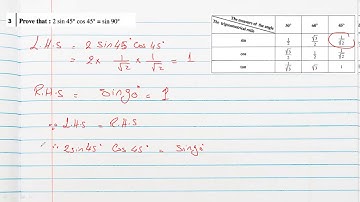 3 Prove that : 2 sin 45° cos 45° = sin 90°
The measure of the angle
The trigonometric ratio
30° 60° 45°
sin 1/2 √3/2 1/√2
cos √3/2 1/2 1/√2
1
L.H.S = 2 sin45° cos 45°
= 2 x 1/√2 x 1/√2 = 1
R.H.S = sin90° = 1
∵ L.H.S = R.H.S
∴ 2sin45° Cos 45° = sin90°